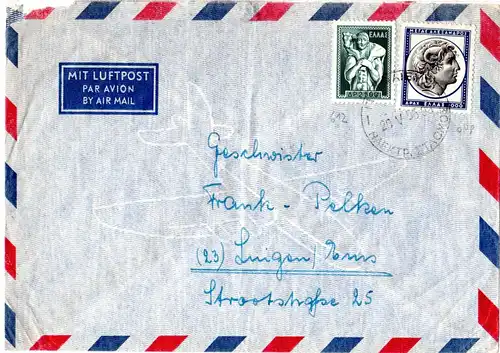 MIT LUFTPOST
PAR AVION
BY AIR MAIL
ΕΛΛΑΣ
ΜΕΓΑΣ ΑΛΕΞΑΝΔΡΟΣ
ΔΡΑΧ. ΕΛΛΑΣ
Geschwister
Frank - Pelken
(23) Lingen/Ems
Strootstraße 25